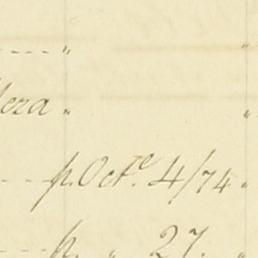 ---- "
era "
-- p. Octre. 4/74 "
--- p. " 27. "